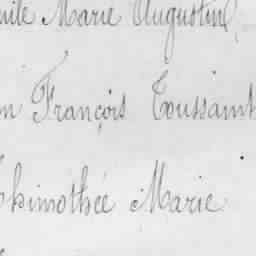 Marie Augustine
François Toussaint
Thimothée Marie